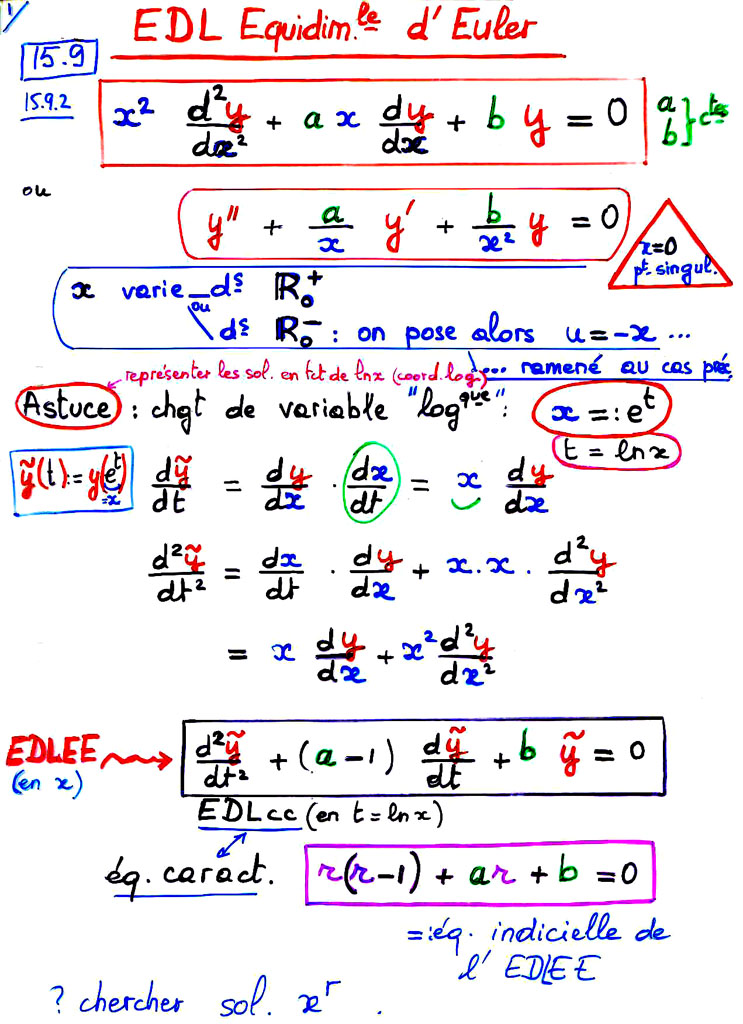 1/
EDL Equidim.le d'Euler
15.9
15.9.2
x² d²y/dx² + a x dy/dx + b y = 0 a b } ctes
ou
y'' + a/x y' + b/x² y = 0
x=0
pt singul.
x varie ds ℝ₀⁺
ou
ds ℝ₀⁻ : on pose alors u = -x ...
... ramené au cas préc
représenter les sol. en fct de ln x (coord. log.)
Astuce : chgt de variable "logque" : x =: e^t
t = ln x
ỹ(t) := y(e^t) =x dỹ/dt = dy/dx · dx/dt = x dy/dx
d²ỹ/dt² = dx/dt · dy/dx + x.x. d²y/dx²
= x dy/dx + x² d²y/dx²
EDLEE d²ỹ/dt² + (a-1) dỹ/dt + b ỹ = 0
(en x)
EDLcc (en t = ln x)
éq. caract. r(r-1) + ar + b = 0
=: éq. indicielle de
l'EDLEE
? chercher sol. x^r .